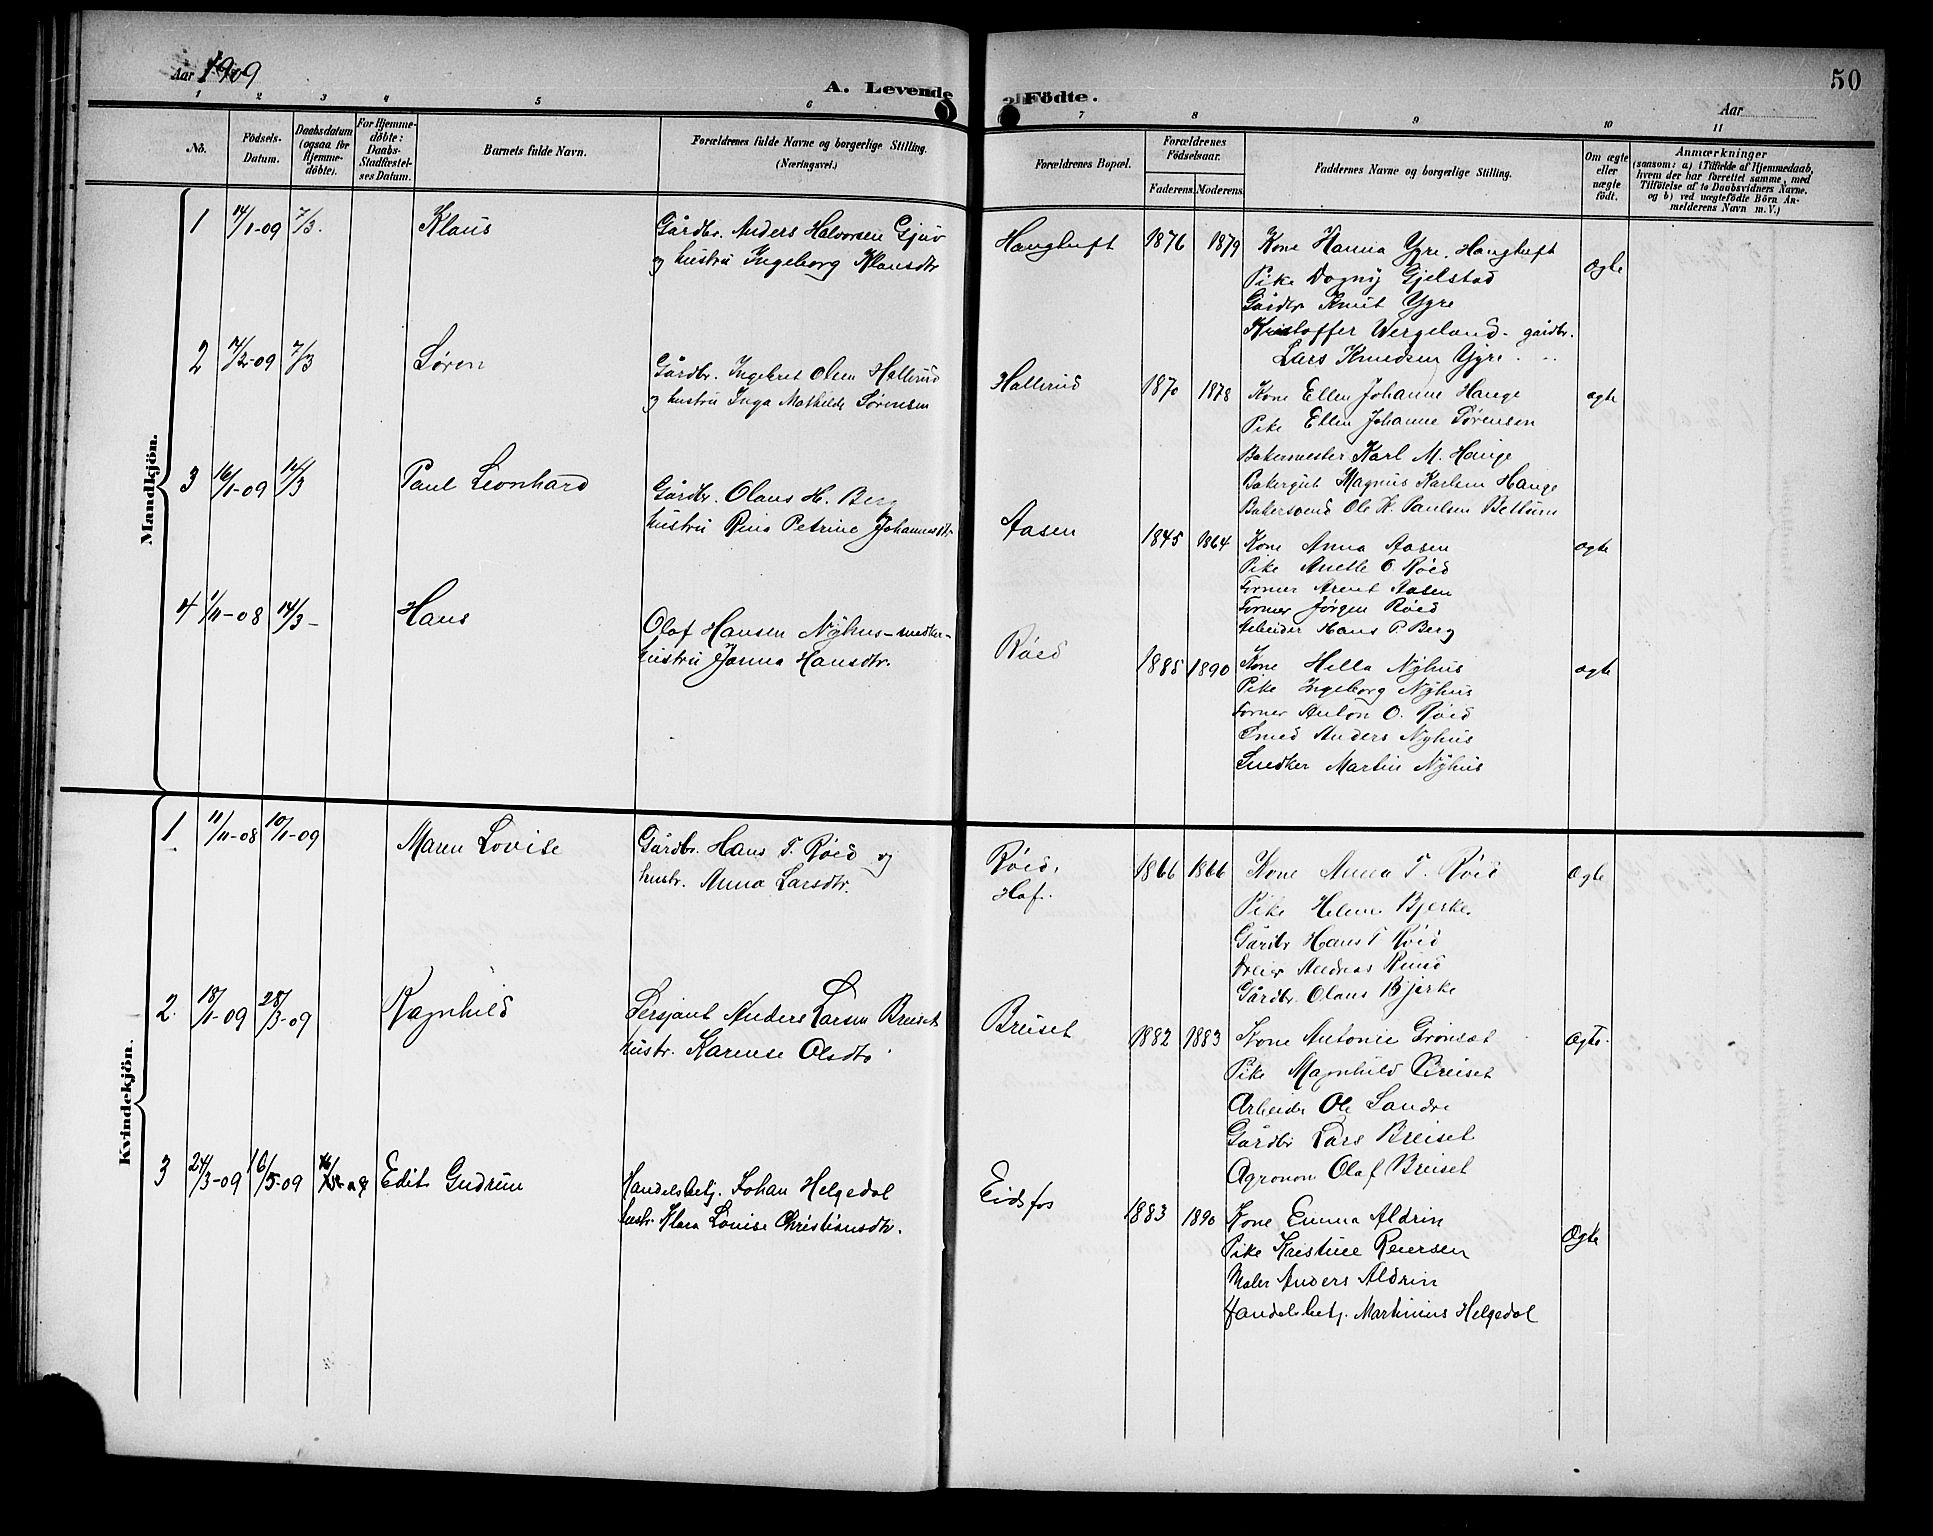 Aar 1909
A. Levende Födte.
Aar
50
1 2 3 4 5 6 7 8 9 10 11
No.
Födsels-Datum.
Daabsdatum (ogsaa for Hjemme-döbte).
For Hjemme-döbte: Daabs-Stadfæstel-ses Datum.
Barnets fulde Navn.
Forældrenes fulde Navne og borgerlige Stilling.
(Næringsvei.)
Forældrenes Bopæl.
Forældrenes Födselsaar.
Faderens. Moderens.
Faddernes Navne og borgerlige Stilling.
Om ægte eller uægte födt.
Anmærkninger
(saasom: a) i Tilfælde af Hjemmedaab,
hvem der har forrettet samme, med
Tilföielse af to Daabsvidners Navne,
og b) ved uægtefödte Börn An-
melderens Navn m. V.)
Mandkjön.
1 14/1-09 7/3. Klaus
Gårdbr. Anders Halvorsen Gjuv
og hustru Ingeborg Klausdtr
Haugtuft 1876 1879
Kone Hanna Ygre, Haugtuft
Pike Dagny Gjelstad
Gårdbr Knut Ygre
Kristoffer Wergeland - gårdbr.
Lars Knudsen Ygre - " -
Ægte
2 14/2-09 7/3 Søren
Gårdbr. Ingebret Olsen Hallerud
og hustru Inga Mathilde Sørensen
Hallerud 1870 1878
Kone Ellen Johanne Hauge
Pike Ellen Johanne Sørensen
Bakermester Karl M. Hauge
Bakergut Magnus Karlem Hauge
Bakersvend Ole K. Paulsen Bettum
ægte
3 16/1-09 14/3 Paul Leonhard
Gårdbr. Olaus H. Berg
hustru Rina Petrine Johannesdtr
Aasen 1845 1864
Kone Anna Aasen
Pike Anette O. Røed
Former Arent Aasen
Former Jørgen Røed
Arbeider Hans P. Berg
ægte
4 1/11-08 14/3- Hans
Olaf Hansen Nyhus - snedker -
hustru Janna Hansdtr.
Røed 1885 1890
Kone Hella Nyhus
Pike Ingeborg Nyhus
Former Anton O. Røed
Smed Anders Nyhus
Snedker Martin Nyhus
ægte
Kvindekjön.
1 11/11-08 10/1-09 Maren Lovise
Gårdbr. Hans T. Røed og
hustr. Anna Larsdtr.
Røed, Hof. 1866 1866
Kone Anna T. Røed
Pike Helene Bjerke.
Gårdbr Hans T Røed
Andreas Ruud
Gårdbr. Olaus Bjerke
Ægte
2. 18/1-09 28/3-09 Ragnhild
Sersjant Anders Larsen Breiset
hustr. Karense Olsdtr
Breiset 1882 1883
Kone Antonie Grønsæt
Pike Magnhild Breiset
Arbeider Ole Sandre
Gårdbr Lars Breiset
Agronom Olaf Breiset
Ægte.
3 24/3-09 16/5-09 Edit Gudrun
Handelsbetj. Johan Helgedal
hustr. Klara Louise Christiansdtr.
Eidsfos 1883 1890
Kone Emma Aldrin
Pike Kristine Reiersen
Maler Anders Aldrin
Handelsbetj. Martinius Helgedal
Ægte